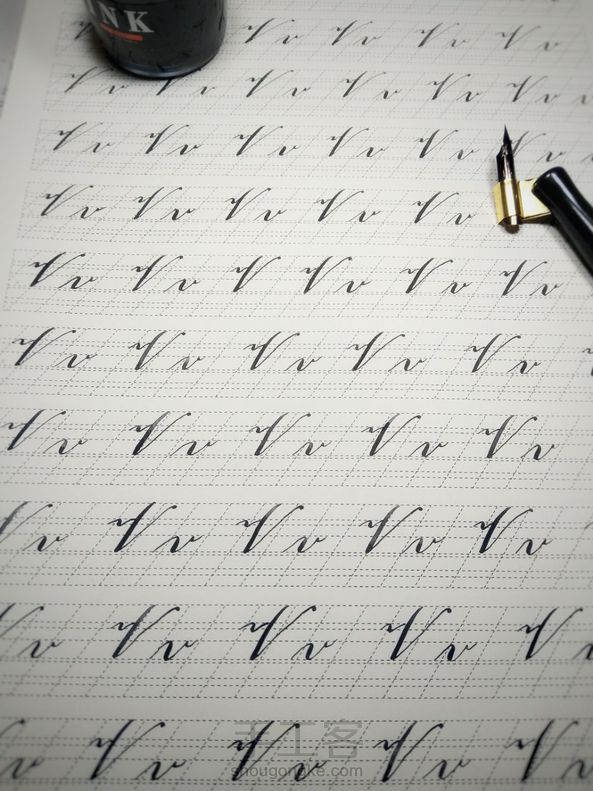 INK
Vv Vv Vv Vv Vv
Vv Vv Vv Vv Vv Vv
Vv Vv Vv Vv Vv Vv
Vv Vv Vv Vv Vv
Vv Vv V Vv Vv Vv
Vv Vv Vv Vv Vv
Vv Vv Vv Vv Vv
Vv Vv Vv Vv Vv
Vv Vv Vv Vv Vv
Vv Vv Vv Vv Vv
手工客
shougongke.com